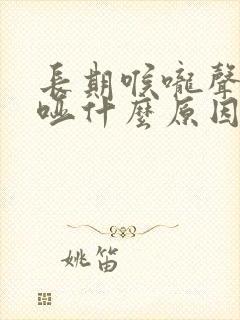 長期喉嚨聲
啞什麼原因
姚笛